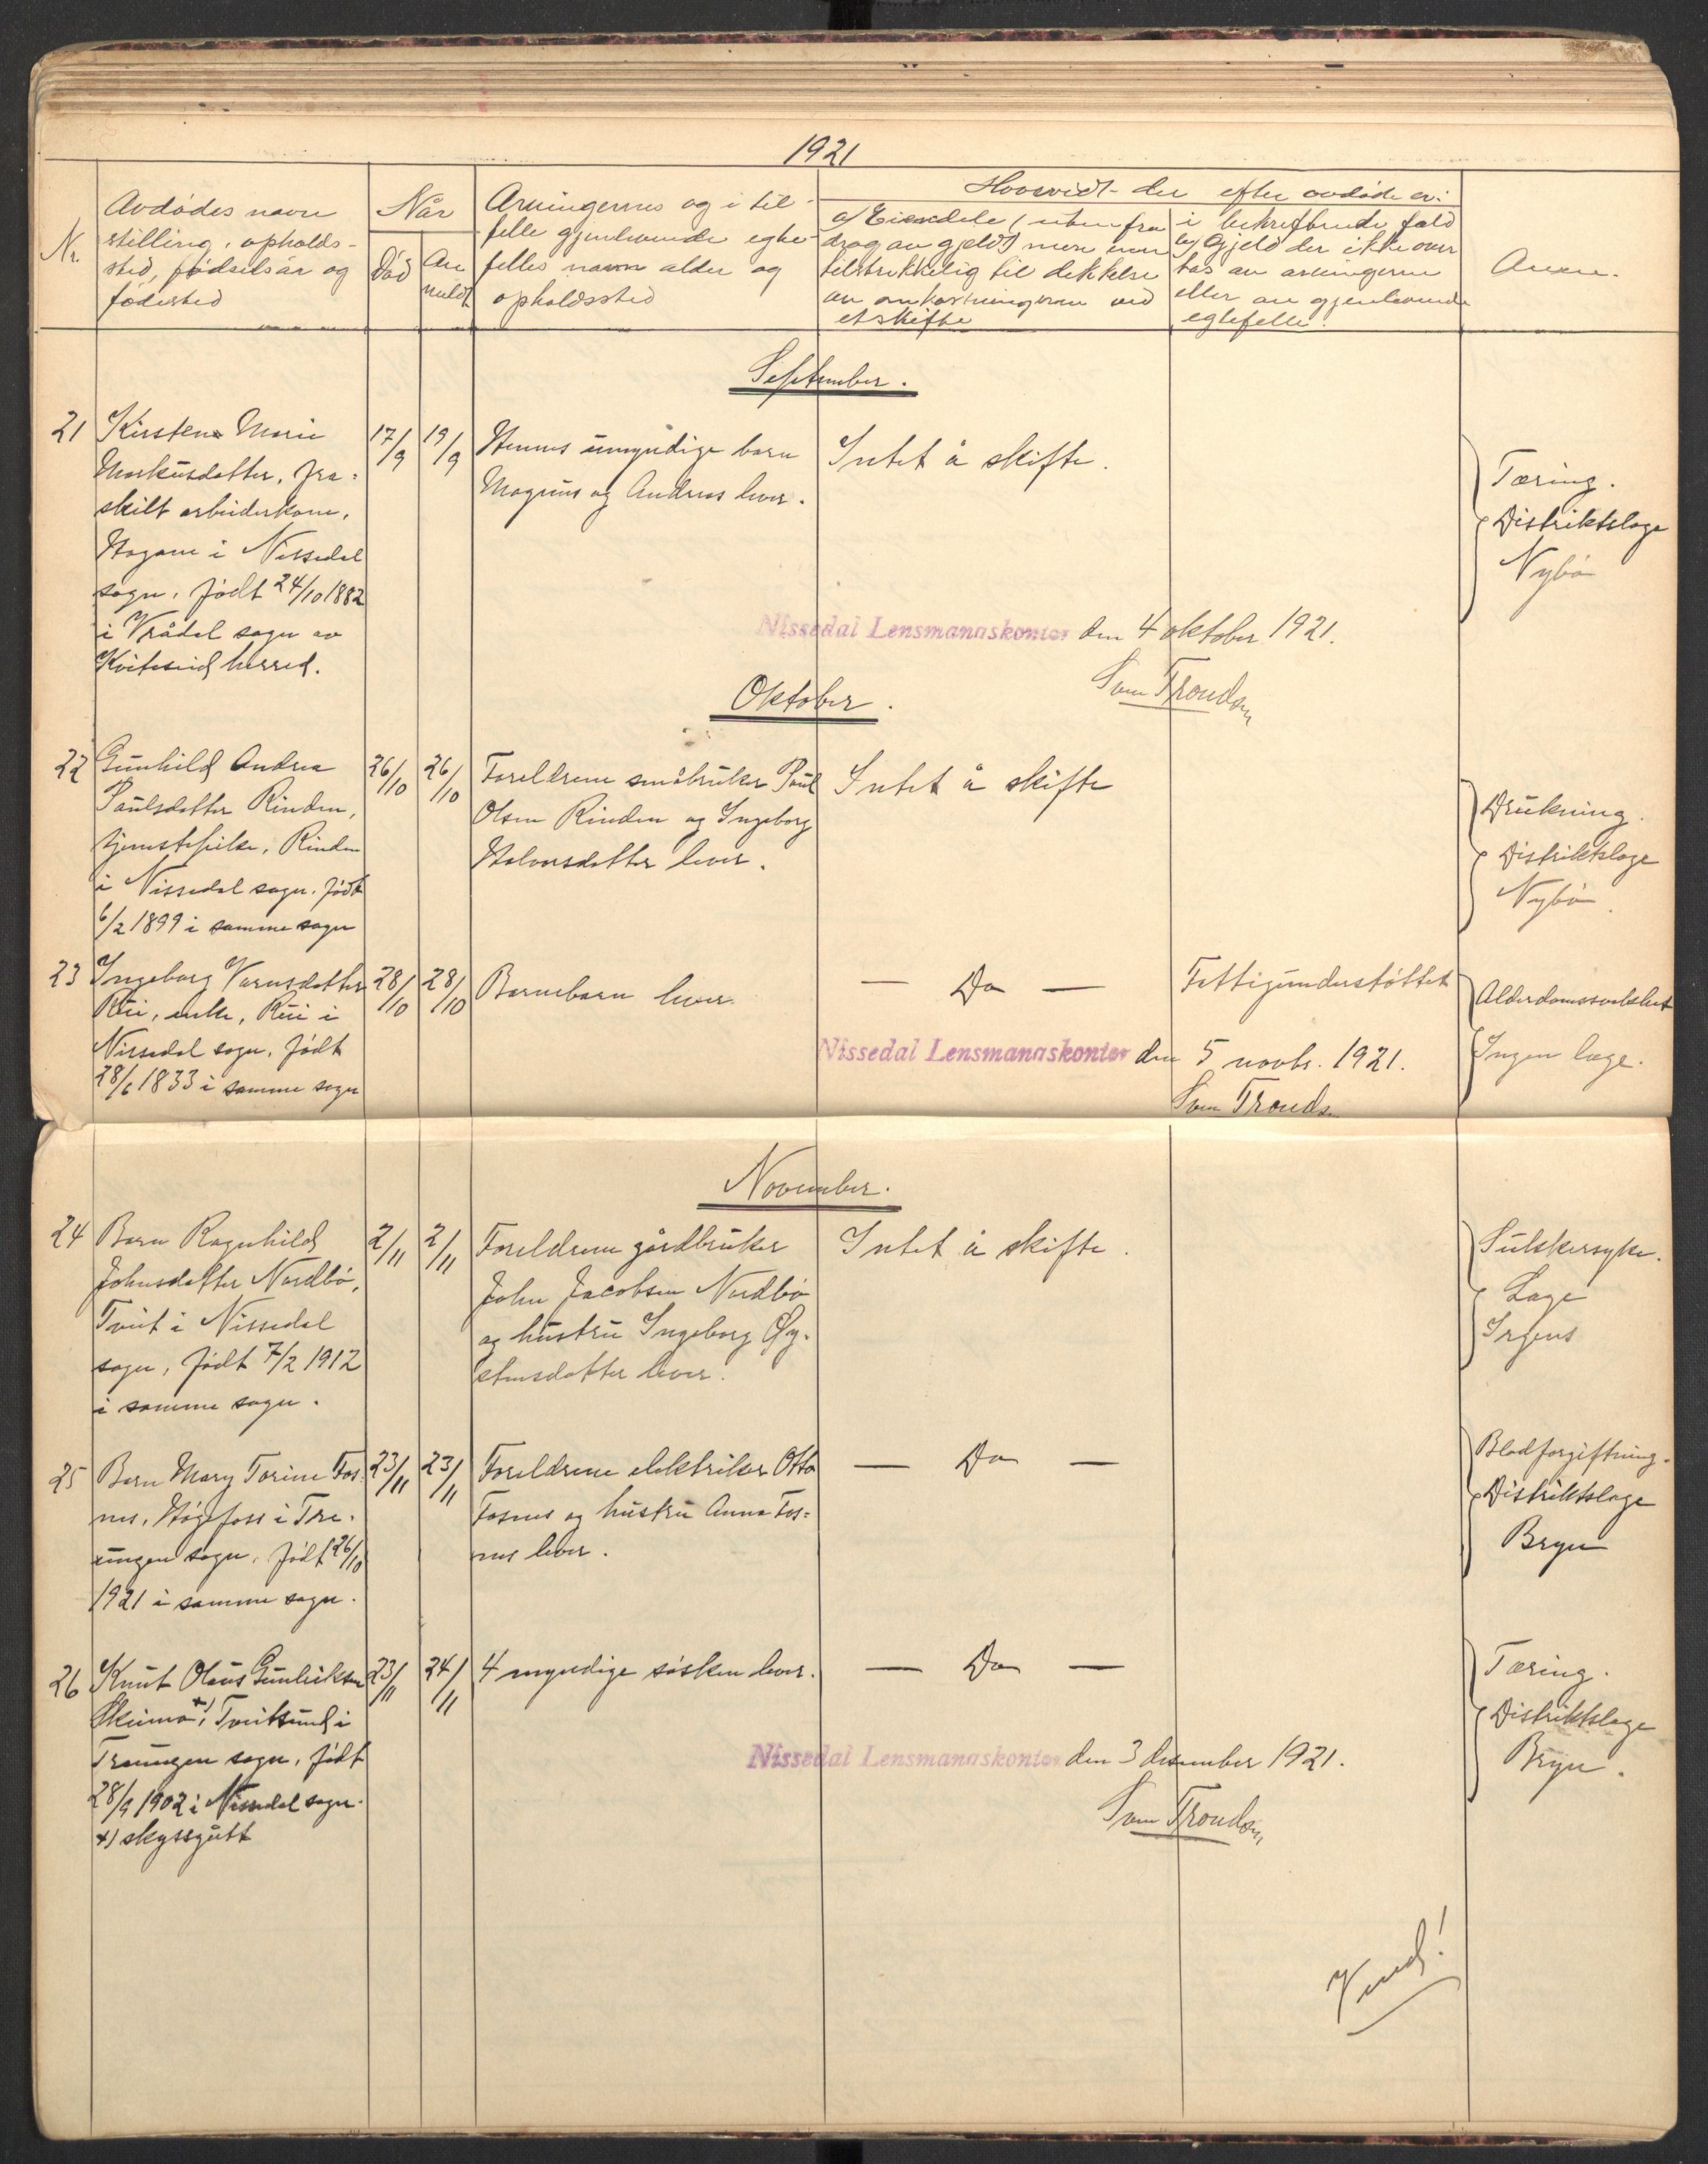 1921
Nr.
Avdødes navn
stilling, opholds-
sted, fødselsår og
fødested
Når
Død
An
meldt
Arvingernes og i til-
felle gjenlevende egte-
felles navn alder og
opholdssted
Hvorvidt der efter avdøde er:
a) Eiendele (uten fra
drag av gjeld) mere enn
tilstrekkelig til dekkelse
av omkostningerne ved
et skifte
i bekreftende fald
b) Gjeld der ikke over
tas av arvingerne
eller av gjenlevende
egtefelle.
Anm.
September.
21
Kirsten Marie
Markusdatter, fra-
skilt arbeiderkone,
Hagane i Nissedal
sogn, født 24/10 1882
i Vrådal sogn av
Kviteseid herred.
17/9
19/9
Hennes umyndige barn
Magnus og Andreas lever.
Intet å skifte.
Tæring.
Distriktslæge
Nybø
Nissedal Lensmannskontor den 4 oktober 1921.
Sven Trondsen
Oktober.
22
Gunhild Andrea
Paulsdatter Rinden,
tjenestepike, Rinden
i Nissedal sogn, født
6/2 1899 i samme sogn
26/10
26/10
Foreldrene småbruker Paul
Olsen Rinden og Ingeborg
Halvorsdatter lever.
Intet å skifte
Drukning.
Distriktslæge
Nybø.
23
Ingeborg
Rui, enke, Rui i
Nissedal sogn, født
28/6 1833 i samme sogn
28/10
28/10
Barnebarn lever.
— Do —
Fattigunderstøttet
Alderdomssvakhet
Ingen læge.
Nissedal Lensmannskontor den 5 novbr. 1921.
Sven Trondsen
November.
24
Barn Ragnhild
Johnsdatter Nordbø,
Tveit i Nissedal
sogn, født 7/2 1912
i samme sogn.
2/11
2/11
Foreldrene gårdbruker
John Jacobsen Nordbø
og hustru Ingeborg Øy-
stensdatter lever.
Intet å skifte.
Sukkersyke.
Læge
Irgens
25
Barn Mary Torine Fos-
nes, Høgefoss i Tre-
ungen sogn, født 26/10
1921 i samme sogn.
23/11
23/11
Foreldrene elektriker Otto
Fosnes og hustru Anna Fos-
nes lever.
— Do —
Blodforgiftning.
Distriktslæge
Bryn
26
Knut Olaus Gunleiksen
Skeimo x), Tveitsund i
Treungen sogn, født
28/9 1902 i Nissedal sogn.
x) skyssgutt
23/11
24/11
4 myndige søsken lever.
— Do —
Tæring.
Distriktslæge
Bryn.
Nissedal Lensmannskontor den 3 desember 1921.
Sven Trondsen
Vend!